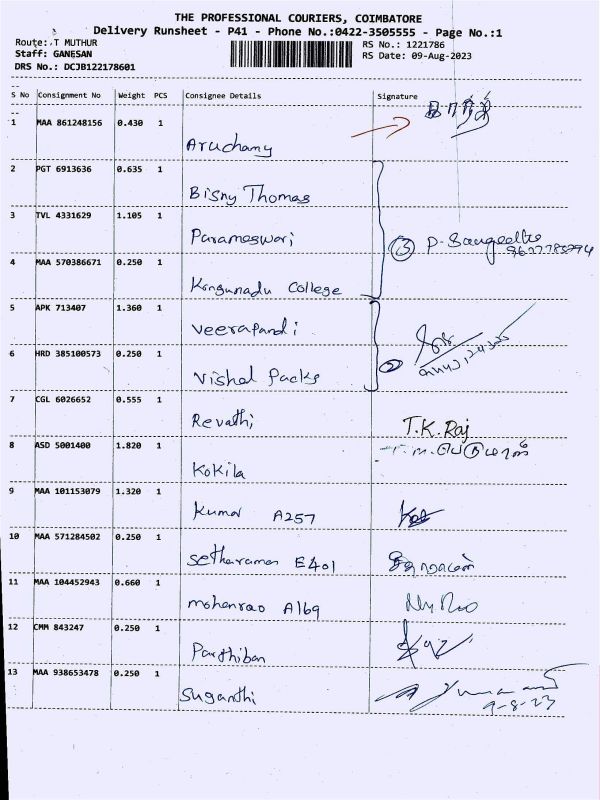 THE PROFESSIONAL COURIERS, COIMBATORE
Delivery Runsheet - P41 - Phone No.:0422-3505555 - Page No.:1
Route: T MUTHUR
Staff: GANESAN
DRS No.: DCJB122178601
RS No.: 1221786
RS Date: 09-Aug-2023
S No Consignment No Weight PCS Consignee Details Signature
1 MAA 861248156 0.430 1
Aruchamy
2 PGT 6913636 0.635 1
Bisny Thomas
3 TVL 4331629 1.105 1
Parameswari
③ P. Sangeetha
4 MAA 570386671 0.250 1
Kongunadu College
5 APK 713407 1.360 1
Veerapandi
6 HRD 385100573 0.250 1
②
Vishal Packs
7 CGL 6026652 0.555 1
Revathi T.K. Raj
8 ASD 5001400 1.820 1
Kokila
9 MAA 101153079 1.320 1
Kumar A257
10 MAA 571284502 0.250 1
Setharaman E401
11 MAA 104452943 0.660 1
mohanrao A169
12 CMM 843247 0.250 1
Parthiban
13 MAA 938653478 0.250 1
Suganthi
9-8-23